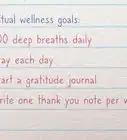 tual wellness goals:
00 deep breaths daily
ay each day
art a gratitude journal
rite one thank you note per w